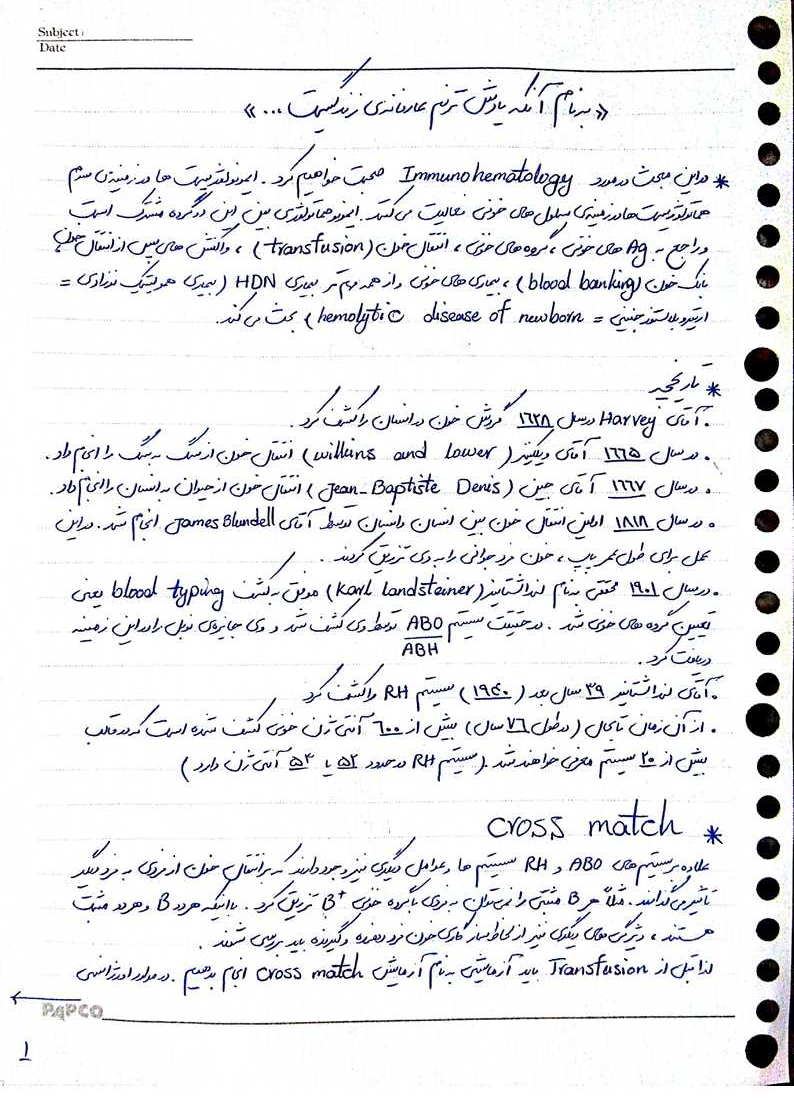 Subject:
Date
« به نام آنکه یادش ترنم عارفانه‌ی زندگیست ... »
* در این مبحث در مورد Immunohematology صحبت خواهیم کرد. ایمونولوژیست ها در زمینه‌ی سرم
هماتولوژیست ها در زمینه‌ی سلول های خونی فعالیت می کنند. ایمونوهماتولوژی بین این دو گروه مشترک است
و راجع به Ag های خونی، گروه های خونی، انتقال خون (transfusion)، واکنش های پس از انتقال خون،
بانک خون (blood banking)، بیماری های خونی و از همه مهم تر بیماری HDN (بیماری همولیتیک نوزادی =
اریتروبلاستوز جنینی = hemolytic disease of newborn) بحث می کند.
* تاریخچه
. آقای Harvey در سال ۱۶۲۸ گردش خون در انسان را کشف کرد.
. در سال ۱۶۶۵ آقای ویلکینز (willkins and lower) انتقال خون از سگ به سگ را انجام داد.
. در سال ۱۶۶۷ آقای جین (Jean-Baptiste Denis) انتقال خون از حیوان به انسان را انجام داد.
. در سال ۱۸۱۸ اولین انتقال خون بین انسان و انسان توسط آقای James Blundell انجام شد. در این
عمل برای طول عمر پاپ، خون فرد جوانی را به وی تزریق کردند.
. در سال ۱۹۰۱ محققی به نام لنداشتاینر (Karl Landsteiner) موفق به کشف blood typing یعنی
تعیین گروه های خونی شد. در حقیقت سیستم ABO توسط وی کشف شد و وی جایزه‌ی نوبل را در این زمینه
ABH
دریافت کرد.
. آقای لنداشتاینر ۳۹ سال بعد (۱۹۴۰) سیستم RH را کشف کرد
. از آن زمان تا بحال (در طول ۷۶ سال) بیش از ۶۰۰ آنتی ژن خونی کشف شده است که در قالب
بیش از ۲۰ سیستم معرفی خواهند شد. (سیستم RH در حدود ۵۲ یا ۵۴ آنتی ژن دارد)
* cross match
علاوه بر سیستم های ABO و RH سیستم ها و عوامل دیگری نیز وجود دارند که بر انتقال خون از فردی به فرد دیگر
تاثیر می گذارند. مثلاً هر B مثبتی را نمی توان به فردی با گروه خونی B⁺ تزریق کرد. با اینکه هر دو B و هر دو مثبت
هستند، ویژگی های دیگری نیز از لحاظ سازگاری خون فرد دهنده و گیرنده باید بررسی شوند.
لذا قبل از Transfusion باید آزمایشی به نام آزمایش cross match انجام بدهیم. در موارد اورژانسی
PAPCO
۱